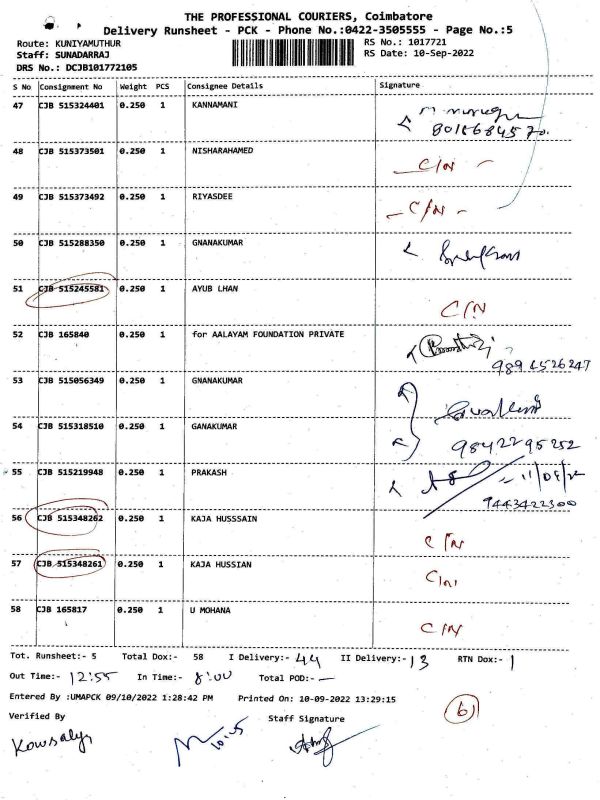 THE PROFESSIONAL COURIERS, Coimbatore
Delivery Runsheet - PCK - Phone No.:0422-3505555 - Page No.:5
Route: KUNIYAMUTHUR RS No.: 1017721
Staff: SUNADARRAJ RS Date: 10-Sep-2022
DRS No.: DCJB101772105
S No Consignment No Weight PCS Consignee Details Signature
47 CJB 515324401 0.250 1 KANNAMANI
48 CJB 515373501 0.250 1 NISHARAHAMED C/N -
49 CJB 515373492 0.250 1 RIYASDEE - C/N -
50 CJB 515288350 0.250 1 GNANAKUMAR
51 CJB 515245581 0.250 1 AYUB LHAN C/N
52 CJB 165840 0.250 1 for AALAYAM FOUNDATION PRIVATE
9894526247
53 CJB 515056349 0.250 1 GNANAKUMAR
54 CJB 515318510 0.250 1 GANAKUMAR
9842295252
55 CJB 515219948 0.250 1 PRAKASH
9443422300
56 CJB 515348262 0.250 1 KAJA HUSSSAIN C/N
57 CJB 515348261 0.250 1 KAJA HUSSIAN C/N
58 CJB 165817 0.250 1 U MOHANA C/N
Tot. Runsheet:- 5 Total Dox:- 58 I Delivery:- 44 II Delivery:- 13 RTN Dox:- 1
Out Time:- 12:55 In Time:- 8:00 Total POD:- -
Entered By :UMAPCK 09/10/2022 1:28:42 PM Printed On: 10-09-2022 13:29:15
6
Verified By Staff Signature
Kowsalya 10:45